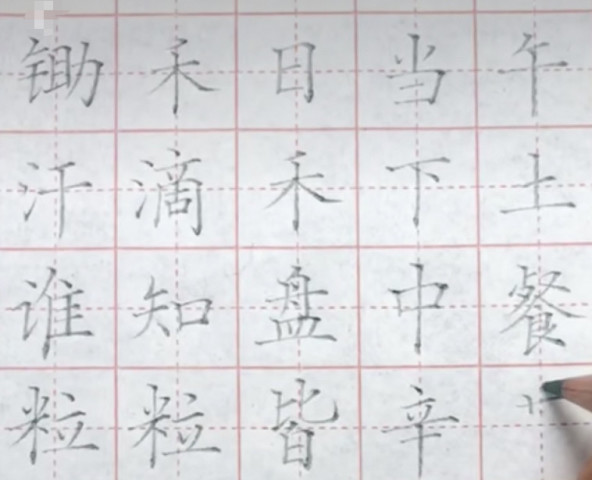 锄禾日当午
汗滴禾下土
谁知盘中餐
粒粒皆辛